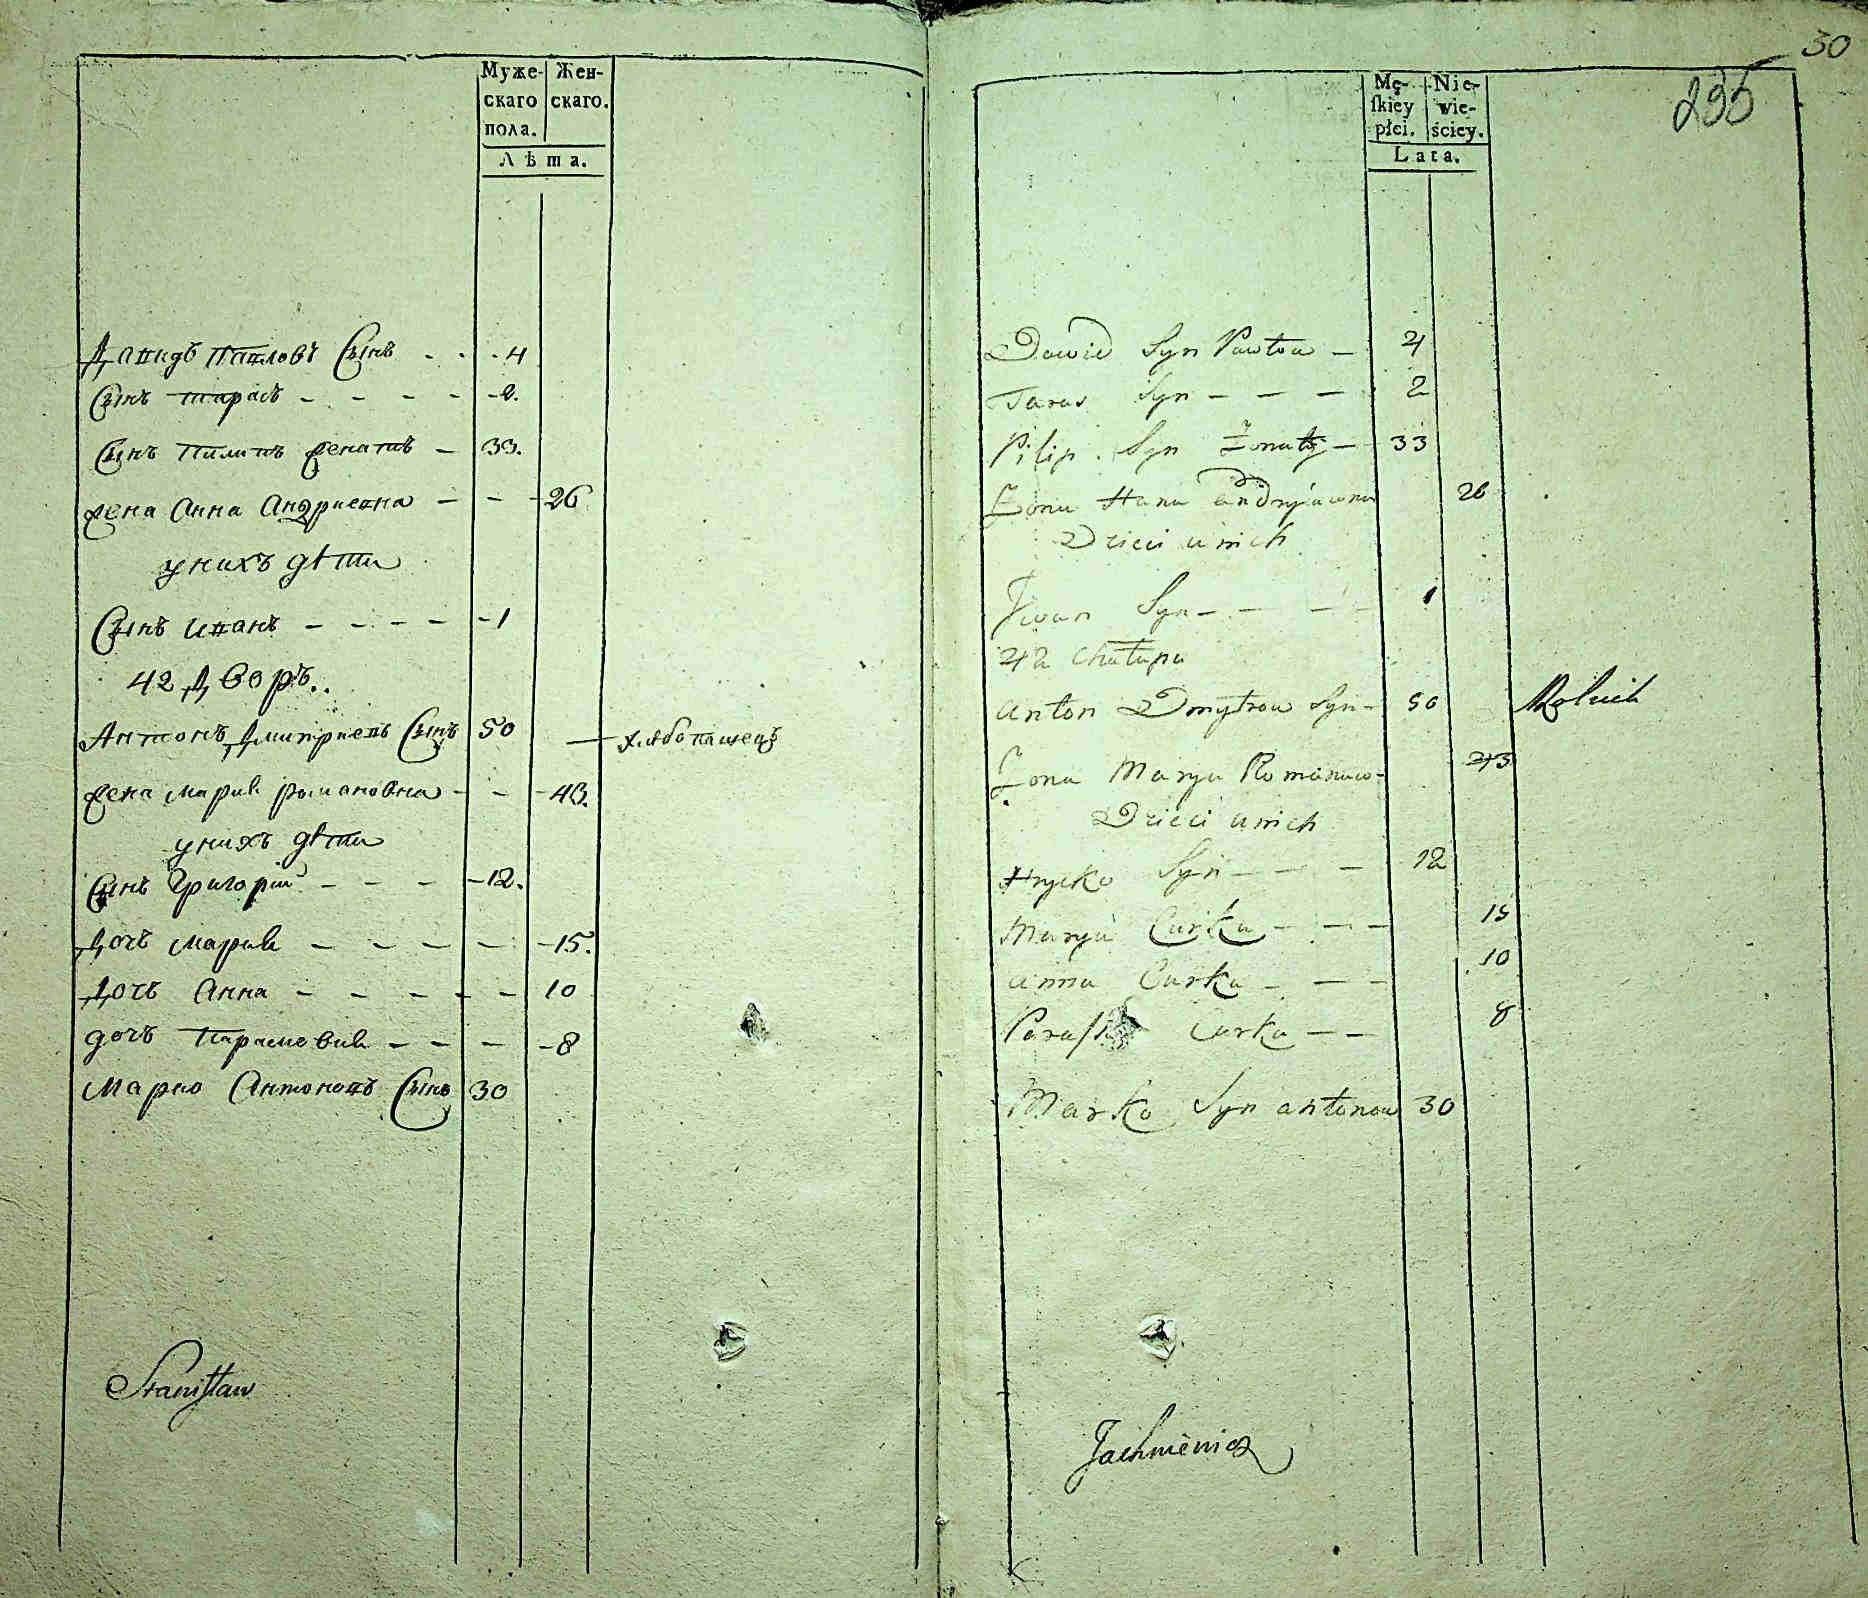 Муже- Жен-
скаго скаго.
пола.
Лѣта.
Давидъ Павловъ Сынъ - - - 4
Сынъ Тарасъ - - - - 2.
Сынъ Пилипъ женатъ - 33.
жена Анна Андриевна - - - 26
у нихъ дѣти
Сынъ Иванъ - - - - - 1
42 Дворъ..
Антонъ Дмитриевъ Сынъ 50 — хлѣбопашецъ
жена Мария романовна - - - 43.
у нихъ дѣти
Сынъ Григорій - - - - 12.
Дочь Мария - - - - - 15.
Дочъ Анна - - - - - 10
дочъ Парасковия - - - - 8
Марко Антоновъ Сынъ 30
Stanisław
30
235
Mę- Nie-
ſkiey wie-
płci. ściey.
Lata.
Dawid Syn Pawłow - 4
Taras Syn - - - 2
Pilip Syn Żonaty - 33
Żona Hana Andryiowna 26
Dzieci u nich
Jwan Syn - - - 1
42 Chałupa
Anton Dmytrow Syn - 50 Rolnik
Żona Marya Romanow- 43
Dzieci u nich
Hryćko Syn - - - 12
Marya Curka - - - 15
Anna Curka - - - 10
Curka - - 8
Marko Syn Antonow 30
Jachniewicz